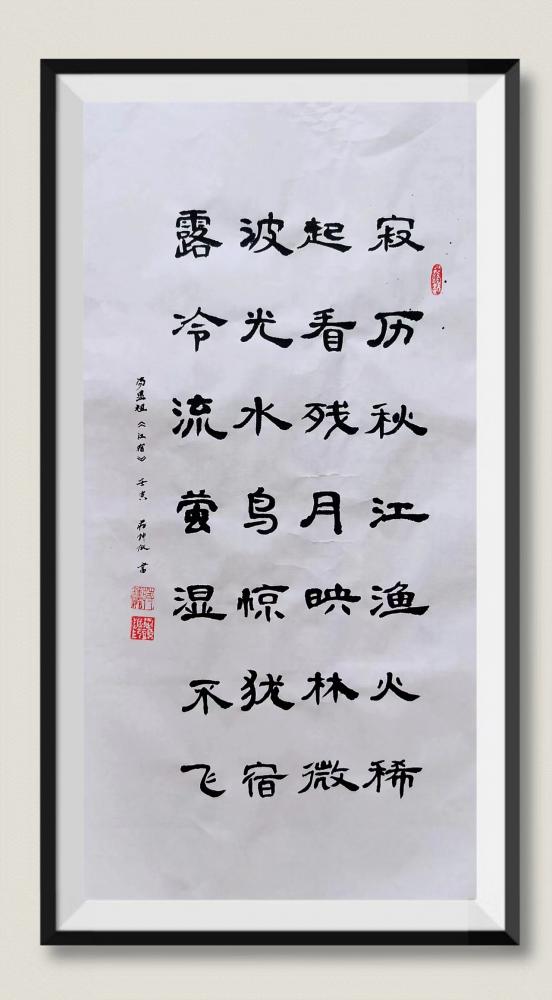 寂历秋江渔火稀
起看残月映林微
波光水鸟惊犹宿
露冷流萤湿不飞
汤显祖《江宿》 壬寅 书